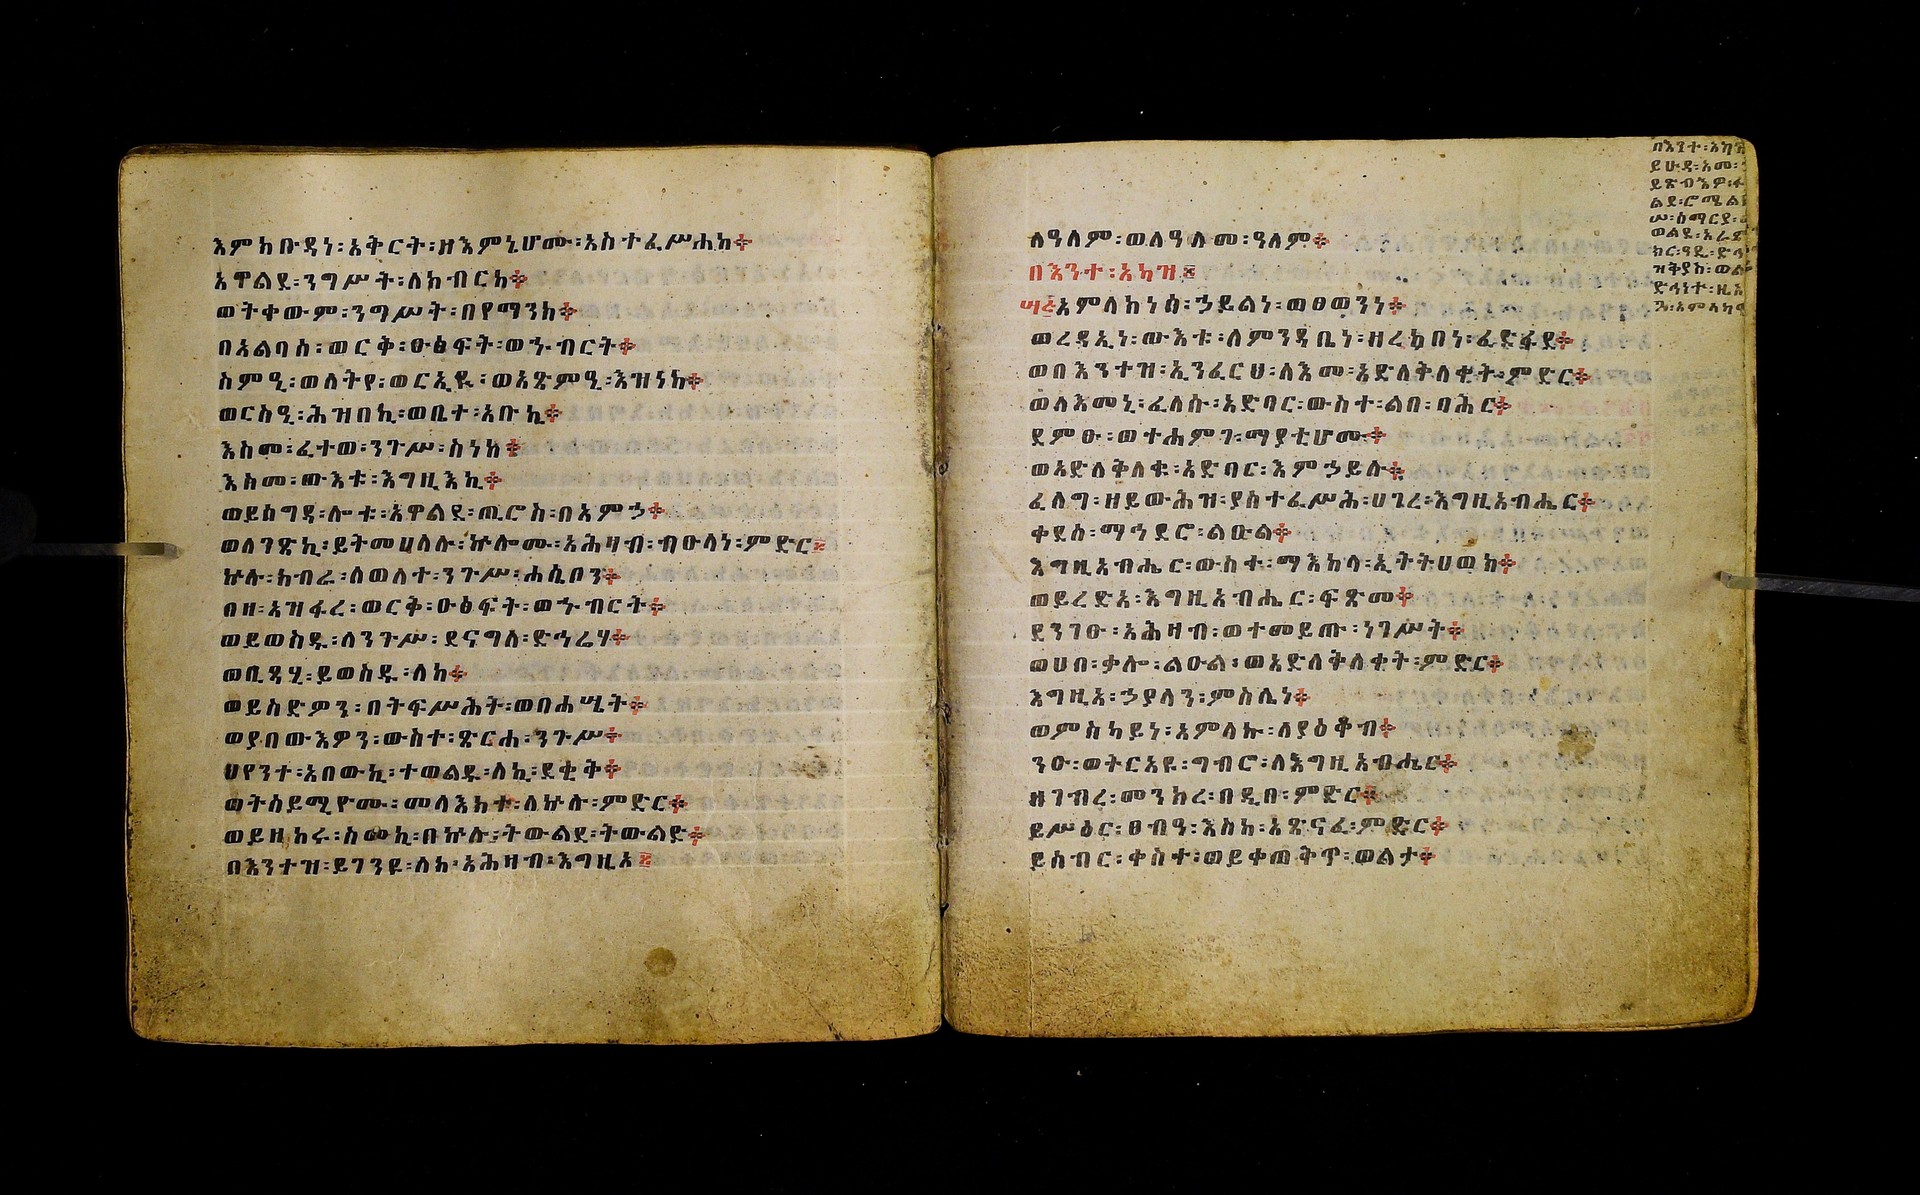 እምክቡዳነ፡አቅርት፡ዘእምኒሆሙ፡አስተፈሥሐከ።
አዋልደ፡ንግሥት፡ለክብርከ።
ወትቀውም፡ንግሥት፡በየማንከ።
በአልባሰ፡ወርቅ፡ዑፅፍት፡ወኁብርት።
ስምዒ፡ወለትየ፡ወርእዪ፡ወአጽምዒ፡እዝነኪ።
ወርስዒ፡ሕዝበኪ፡ወቤተ፡አቡኪ።
እስመ፡ፈተወ፡ንጉሥ፡ስነከ።
እስመ፡ውእቱ፡እግዚእኪ።
ወይሰግዳ፡ሎቱ፡አዋልደ፡ጢሮስ፡በአምኃ።
ወለገጽኪ፡ይትመሀለሉ፡ኵሎሙ፡አሕዛብ፡ብዑላነ፡ምድር።
ኵሉ፡ክብራ፡ለወለተ፡ንጉሥ፡ሐሴቦን።
በዘ፡አዝፋረ፡ወርቅ፡ዑፅፍት፡ወኁብርት።
ወይወስዱ፡ለንጉሥ፡ደናግለ፡ድኅሬሃ።
ወቢጻሂ፡ይወስዱ፡ለከ።
ወይስድዎን፡በትፍሥሕት፡ወበሐሤት።
ወያበውእዎን፡ውስተ፡ጽርሐ፡ንጉሥ።
ህየንተ፡አበውኪ፡ተወልዱ፡ለኪ፡ደቂቅ።
ወትሰይሚዮሙ፡መላእክተ፡ለኵሉ፡ምድር።
ወይዘከሩ፡ስመኪ፡በኵሉ፡ትውልደ፡ትውልድ።
በእንተዝ፡ይገንዩ፡ለከ፡አሕዛብ፡እግዚአ።
ለዓለም፡ወለዓለመ፡ዓለም።
በእንተ፡አካዝ።
አምላክነሰ፡ኃይልነ፡ወፀወንነ።
ወረዳኢነ፡ውእቱ፡ለምንዳቤነ፡ዘረከበነ፡ፈድፋደ።
ወበእንተዝ፡ኢንፈርህ፡ለእመ፡አድለቅለቂት፡ምድር።
ወለእመኒ፡ፈለሱ፡አድባር፡ውስተ፡ልበ፡ባሕር።
ደምፁ፡ወተሐምጉ፡ማያቲሆሙ።
ወአድለቅለቁ፡አድባር፡እምኃይሉ።
ፈለግ፡ዘይውሕዝ፡ያስተፈሥሕ፡ሀገረ፡እግዚአብሔር።
ቀደሰ፡ማኅደሮ፡ልዑል።
እግዚአብሔር፡ውስተ፡ማእከላ፡ኢትትሀወክ።
ወይረድአ፡እግዚአብሔር፡ፍጽመ።
ደንገፁ፡አሕዛብ፡ወተመይጡ፡ነገሥት።
ወሀበ፡ቃሎ፡ልዑል፡ወአድለቅለቂት፡ምድር።
እግዚአ፡ኃያላን፡ምስሌነ።
ወምስካይነ፡አምላኩ፡ለያዕቆብ።
ንዑ፡ወትርአዩ፡ግብሮ፡ለእግዚአብሔር።
ዘገብረ፡መንክረ፡በዲበ፡ምድር።
ይሥዕር፡ፀብዓ፡እስከ፡አጽናፈ፡ምድር።
ይሰብር፡ቀስተ፡ወይቀጠቅጥ፡ወልታ።